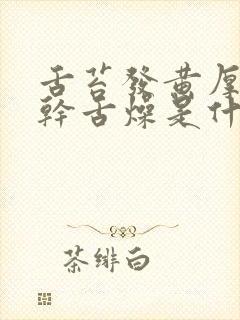 舌苔發黃厚
幹舌燥是什
茶緋白